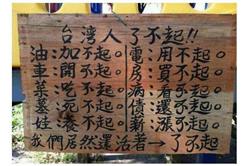 台灣人了不起!!
油:加不起。電:用不起。
車:開不起。房:買不起。
菜:吃不起。病:看不起。
墓:死不起。債:還不起。
娃:養不起。薪:漲不起。
我們居然還活著→了不起